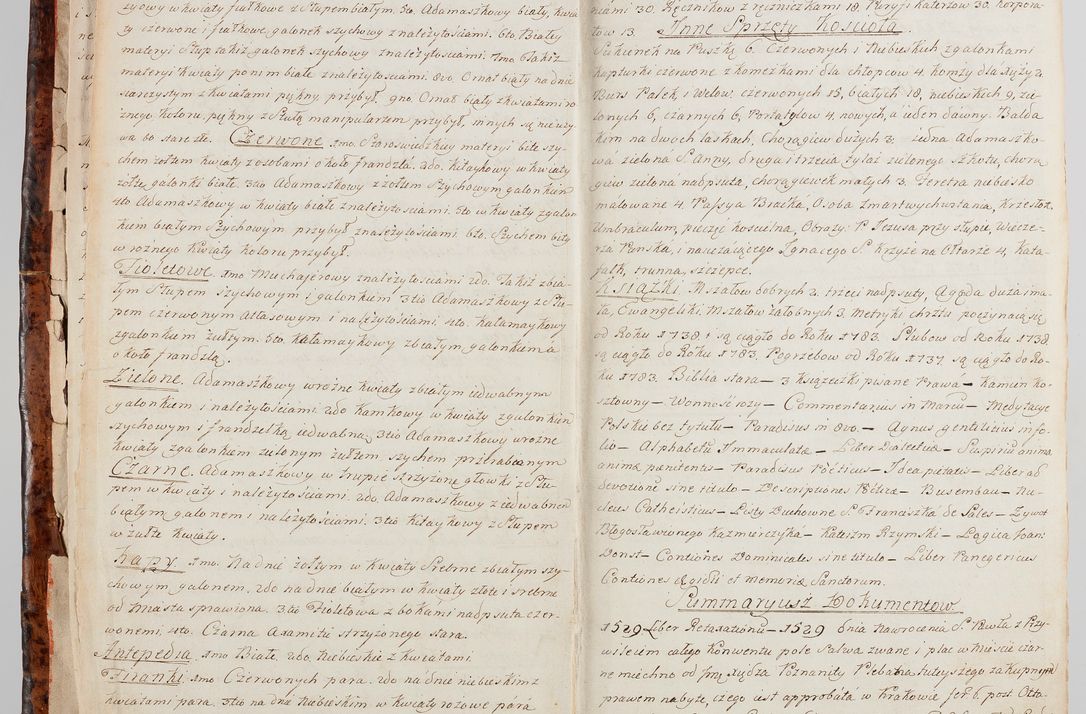 żyowy w kwiaty fiałkowe z Słupem białym. 5to. Adamaszkowy biały, kwia
ty czerwone i fiałkowe, galonek szychowy z należytościami. 6to Biały
materyi Słup takiż galonek szychowy z należytościami. 7mo. takiż
materyi kwiaty po nim białe z należytościami. 8vo. Ornat biały na dnie
siarczystym z kwiatami piękny, przybył. 9no. Ornat biały z kwiatami ro
żnego koloru piękny z Stułą manipularzem przybył, innych się nie uży
wa bo stare złe. Czerwone. 1mo. Staroswieckiey materyi bite szy-
chem żółtem kwiaty z osobami około frandzla. 2do. Kitaykowy w kwiaty
żółte galonki białe. 3tio Adamaszkowy z żółtem Szychowym galonkiem
4to Adamaszkowy w kwiaty białe z należytościami. 5to w kwiaty z galon
kiem białym Szychowym przybył z należytościami. 6to. Szychem bity
w rożnego kwiaty kolоru przybył.
Fioletowe. 1mo Muchajerowy z należytościami 2do. Takiż z bia-
łym Słupem szychowym i galonkiem 3tio Adamaszkowy z Słu-
pem czerwonym atlasowym i należytościami. 4to. Kałamaykowy
z galonkiem żułtym. 5to. Kałamaykowy z białym galonkiem a
około frandzlą.
Zielone. Adamaszkowy w rożne kwiaty z białym iedwabnym
galonkiem i należytościami. 2do Kamkowy w kwiaty z galonkiem
szychowym i frandzelką iedwabną 3tio Adamaszkowy w rożne
kwiaty z galonkiem zielonym żułtym szychem przerabianym
Czarne. Adamaszkowy, w trupie strzyżone głowki z Słu-
pem w kwiaty i należytościami. 2do. Adamaszkowy z iedwabnem
białym galonem i należytościami. 3tio Kitaykowy z Słupem
w żułte kwiaty.
Kapy. 1mo. Na dnie żółtym w kwiaty Srebrne z białym szy-
chowym galonem. 2do na dnie białym w kwiaty złote i srebrne
od Miasta sprawiona. 3tio Fioletowa z bokami nadpsuta czer-
wonemi, 4to. Czarna Axamitu strzyżonego stara.
Antepedia. 1mo Białe. 2do. Niebieskie z kwiatami.
Firanki. 1mo Czerwonych para. 2do na dnie niebieskim z
kwiatami para. 3tio na dnie Niebieskim w kwiaty rozowe para
niami 30. Ręczników z ręcznikami 18. Puryfikaterzow 30. Korpora-
łow 13. Inne Sprzęty Kościoła.
Sukienek na Puszkę 6. Czerwonych i Niebieskich z galonkami
kapturki czerwone z komeżkami dla chłopcow 4. komży dla Xięży 2.
Burs Palek, i Welow, czerwonych 15, białych 18, niebieskich 9, zie
lonych 6, czarnych 6, Portatylow 4. nowych, a ieden dawny. Balda
kim na dwoch laskach, Chorągiew dużych 3. iedna Adamaszko-
wa zielona S. Anny, druga i trzecia żyłai zielonego szkotu, chorą
giew zielona nadpsuta, chorągiewek małych 3. Feretra niebiesko
malowane 4. Passya Bracka, Osoba Zmartwychwstania, Krzesto 2.
Umbraculum, pieczęć koscielna, Obrazy: P. Jezusa przy słupie, wiecze-
rza Pańska, i nauczaiącego Ignacego S. Krzyże na Ołtarze 4, Kata
falk, trunna, szczepce.
Książki. Mszałow dobrych 2. trzeci nadpsuty, Agęda duża i ma-
ła, Ewangeliki, Mszałow żałobnych 3. Metryki chrztu poczynaią się
od Roku 1738. i są ciągło do Roku 1783. Slubow od Roku 1738
są ciągło do Roku 1783. Pogrzebow od Roku 1737 są ciągło do Ro-
ku 1783. Biblia stara — 3 Książeczki pisane Prawa — Kamień ko-
sztowny — Wonność rozy — Commentarius in Marcu — Medytacye
Polskie bez tytułu — Paradisus in 8vo. — Agnus gentilicius in fo-
lio — Alphabetu Immaculatæ — Liber Dialectica — Suspiriu anima
animæ pœnitentis — Paradisus Poeticus — Idea pietatis — Liber ad
devotione sine titulo — Descriptiones Poeticæ — Busembau — Nu-
cleus Catheisticus — Listy Duchowne S. Franciszka de Sales — Zywot
Błogosławionego Kazmierczyka — Kateizm Rzymski — Logica Joan:
Donst — Contiones Dominicales sine titulo — Liber Panegericus
Contiones Ægidii et memoriæ Sanctorum.
Summaryusz Dokumentow.
1529 Liber Retaxationu — 1529 dnia Nawrocenia S. Pawła z Przy-
wileiem całego konwentu pole Salwa zwane i plac w Mieście czar-
ne miechno od Jmę Xiędza Poznanity Plebana tuteyszego zakupionym
prawem nabyte, czego iest approbata w Krakowie fer. 6. post Otta-